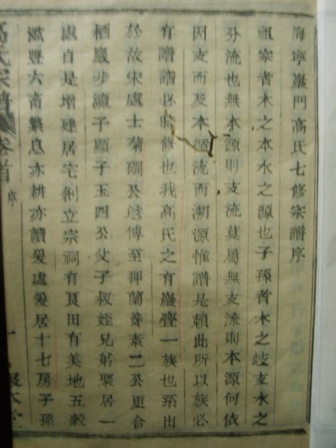 海寧巖門高氏七修宗譜序
祖宗者木之本水之源也子孫者木之歧支水之
分流也無本源則支流莫屬無支流則本源何依
因支而及本源流而溯源惟譜是賴此所以族必
有譜譜必時修也我高氏之有巖亹一族也系出
於故宋處士蘭磵公遞傳至珋蘭養素二公更合
栖巖步瀛子顯子玉四公父子叔姪兄躬聚居一
處自是增建居宅剏立宗祠有艮田有美地五穀
豐六畜繁息亦耕亦讀爰處爰居十七房子孫
高氏宗譜 卷首 序
一